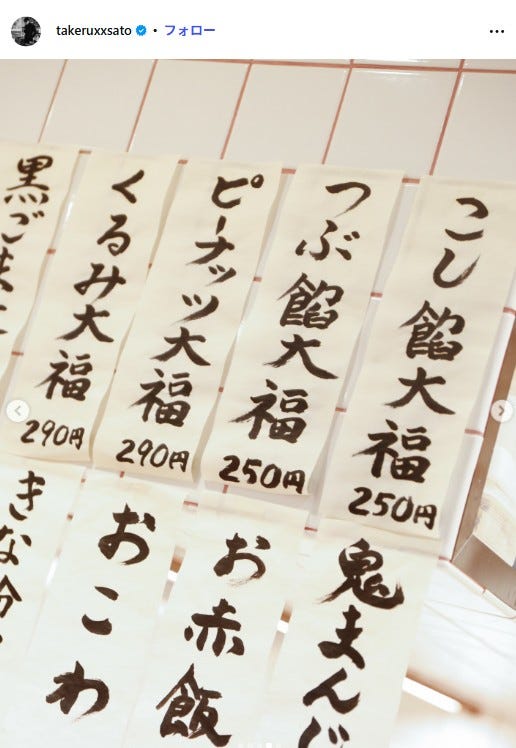 takeruxxsato • フォロー
こし餡大福
250円
つぶ餡大福
250円
ピーナッツ大福
290円
くるみ大福
290円
黒ごま
鬼まんじ
お赤飯
おこわ
きな